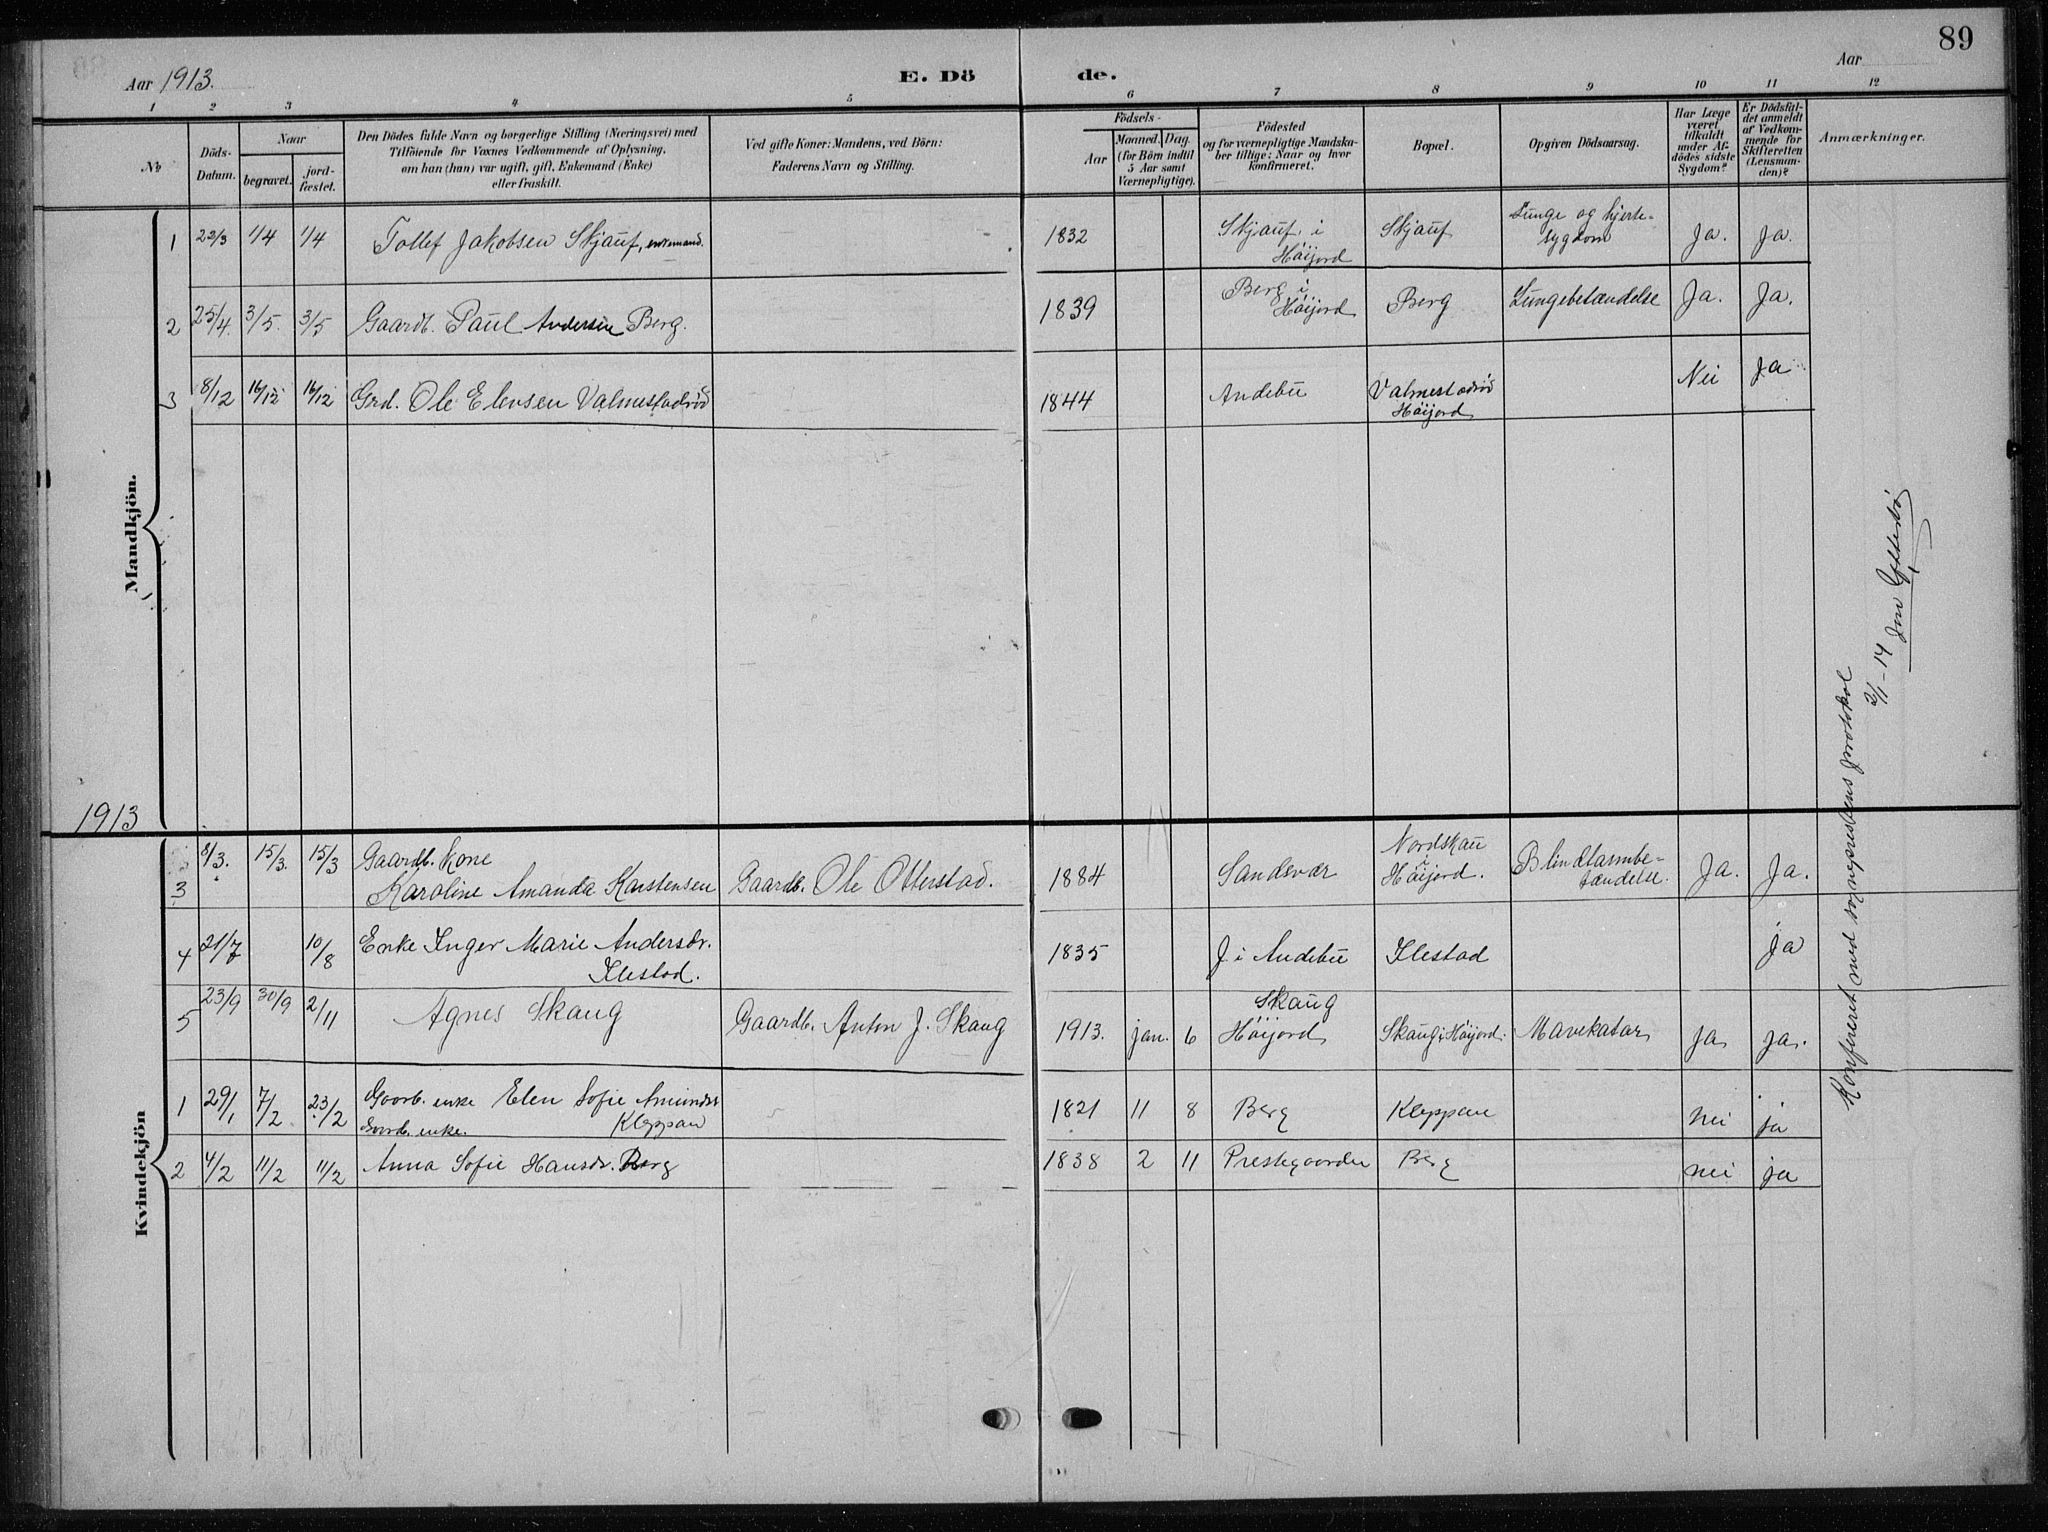 89
Aar 1913. E. Dö de. Aar
1 2 3 4 5 6 7 8 9 10 11 12
No
Döds-Datum.
Naar
begravet.
jord-fæstet.
Den Dödes fulde Navn og borgerlige Stilling (Næringsvei) med
Tilföiende for Voxnes Vedkommende af Oplysning,
om han (hun) var ugift, gift, Enkemand (Enke)
eller fraskilt.
Ved gifte Koner: Mandens, ved Börn:
Faderens Navn og Stilling.
Födsels-
Aar
Maaned. Dag.
(for Börn indtil
5 Aar samt
Værnepligtige).
Födested
og for værnepligtige Mandska-
ber tillige: Naar og hvor
konfirmeret.
Bopæl.
Opgiven Dödsaarsag.
Har Læge
været
tilkaldt
under Af-
dödes sidste
Sygdom?
Er Dödsfal-
det anmeldt
af Vedkom-
mende for
Skifteretten
(Lensman-
den)?
Anmærkninger.
Mandkjön.
1 23/3 1/4 1/4 Tollef Jakobsen Skjauf, enkemand. 1832 Skjauf i Höijord Skjauf Lunge og hjerte-sygdom Ja. Ja.
2 25/4. 3/5. 3/5 Gaardb. Paul Andersen Berg. 1839 Berg i Höijord Berg Lungebetændelse Ja. Ja.
3 8/12 16/12 16/12 Grd. Ole Elensen Valmestadröd 1844 Andebu Valmestadröd Höijord Nei Ja
1913
Kvindekjön
3 8/3. 15/3. 15/3 Gaardb. kone
Karoline Amanda Karstensen Gaardb. Ole Otterstad. 1884 Sandsvær Nordskau i Höijord. Blindtarmbe-tændelse. Ja. Ja.
4 21/7 10/8 Enke Inger Marie Andersdr.
Ilestad. 1835 J. i Andebu Ilestad Ja
5 23/9 30/9 2/11 Agnes Skaug Gaardb. Anton J. Skaug 1913. jan. 6 Skaug Höijord Skaug i Höijord. Mavekatar Ja Ja.
1 29/1 7/2 23/2 Gaardb. enke Elen Sofie Amundsdr
Kleppan 1821 11 8 Berg Kleppan nei ja
2 4/2 11/2 11/2 Gaardb. enke.
Anna Sofie Hansdr. Berg 1838 2 11 Prestegaarden Berg nei ja
Konfereret med sogneprestens protokol
2/1-14